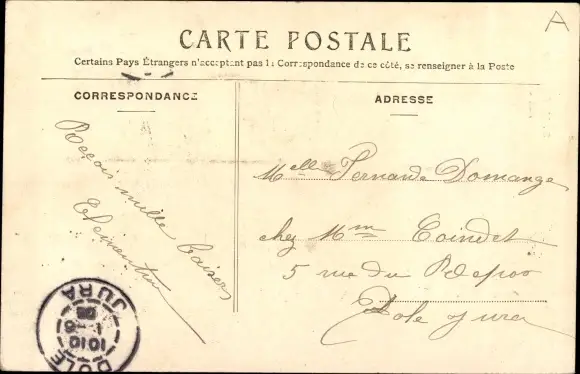 A
CARTE POSTALE
Certains Pays Étrangers n'acceptent pas la Correspondance de ce côté, se renseigner à la Poste
CORRESPONDANCE
ADRESSE
Reçois mille baisers
Clémentine
Melle Fernande Domange
chez Mme Coindet
5 rue du
Dole Jura
DOLE
1010
JURA